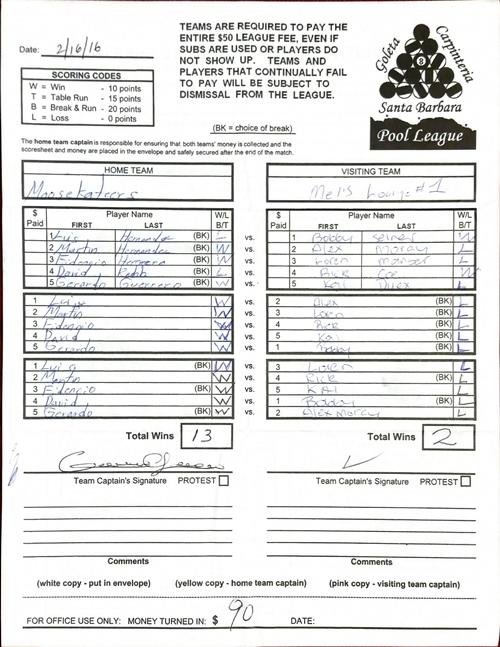 Date: 2/16/16
TEAMS ARE REQUIRED TO PAY THE
ENTIRE $50 LEAGUE FEE, EVEN IF
SUBS ARE USED OR PLAYERS DO
NOT SHOW UP. TEAMS AND
PLAYERS THAT CONTINUALLY FAIL
TO PAY WILL BE SUBJECT TO
DISMISSAL FROM THE LEAGUE.
Goleta Carpinteria
8
Santa Barbara
Pool League
SCORING CODES
W = Win - 10 points
T = Table Run - 15 points
B = Break & Run - 20 points
L = Loss - 0 points
(BK = choice of break)
The home team captain is responsible for ensuring that both teams' money is collected and the
scoresheet and money are placed in the envelope and safely secured after the end of the match.
HOME TEAM VISITING TEAM
Moosekateers Mel's Lounge #1
$ Paid Player Name FIRST LAST W/L B/T $ Paid Player Name FIRST LAST W/L B/T
1 Luis Hernandez (BK) L vs. 1 Bobby W
2 Martin Hernandez W vs. 2 Alex Moray (BK) L
3 Fidencio Herrera (BK) W vs. 3 Loren L
4 David L vs. 4 Rick Coe (BK) W
5 Gerardo Guerrero (BK) W vs. 5 Kai L
1 Luis W vs. 2 Alex (BK) L
2 Martin W vs. 3 Loren (BK) L
3 Fidencio W vs. 4 Rick (BK) L
4 David W vs. 5 Kai (BK) L
5 Gerardo W vs. 1 Bobby (BK) L
1 Luis (BK) W vs. 3 Loren L
2 Martin W vs. 4 Rick (BK) L
3 Fidencio (BK) W vs. 5 KAI L
4 David W vs. 1 Bobby (BK) L
5 Gerardo (BK) W vs. 2 Alex Moray L
Total Wins 13 Total Wins 2
Team Captain's Signature PROTEST Team Captain's Signature PROTEST
Comments Comments
(white copy - put in envelope) (yellow copy - home team captain) (pink copy - visiting team captain)
FOR OFFICE USE ONLY: MONEY TURNED IN: $ 90 DATE: